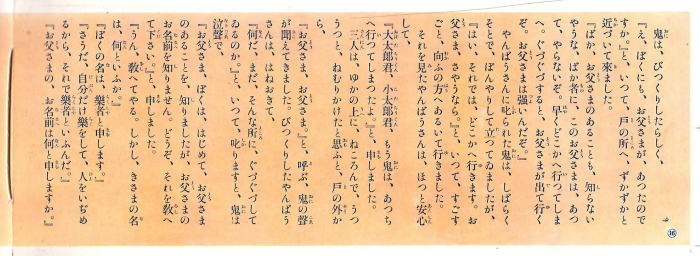 鬼は、びつくりしたらしく、
『え、ぼくにも、お父さまが、あつたので
すか。』と、いつて、戸の所へ、ずかずかと
近づいて來ました。
『ばか、お父さまのあることも、知らない
やうな、ばか者に、このお父さまは、あつ
て、やらないぞ。早くどこかへ行つてしま
へ。ぐづぐづすると、お父さまが出て行く
ぞ。お父さまは强いんだぞ。』
やんばうさんに叱られた鬼は、しばらく
そとで、ぼんやりして立つてゐましたが、
『はい、それでは、どこかへ行きます。お
父さま、さやうなら。』と、いつて、すごす
ごと、向ふの方へあるいて行きました。
それを見たやんばうさんは、ほつと安心
して、
『大太郎君、小太郎君、もう鬼は、あつち
へ行つてしまつたよ』と、申しました。
三人は、ゆかの上に、ねころんで、うつ
うつと、ねむりかけたと思ふと、戸の外か
ら、
『お父さま、お父さま。』と、呼ぶ、鬼の聲
が聞えてきました。びつくりしたやんばう
さんは、はねおきて、
『何だ、まだ、そんな所に、ぐづぐづして
ゐるのか。』と、いつて、叱りますと、鬼は
泣聲で、
『お父さま、ぼくは、はじめて、お父さま
のあることを、知りましたが、お父さまの
お名前を知りません。どうぞ、それを敎へ
て下さい。』と、申しました。
『うん、敎へてやる。しかし、きさまの名
は、何といふか。』
『ぼくの名は、樂者と申します。』
『さうだ、自分だけ樂をして、人をいぢめ
るから、それで樂者といふんだ。』
『お父さまの、お名前は何と申しますか。』
⑯